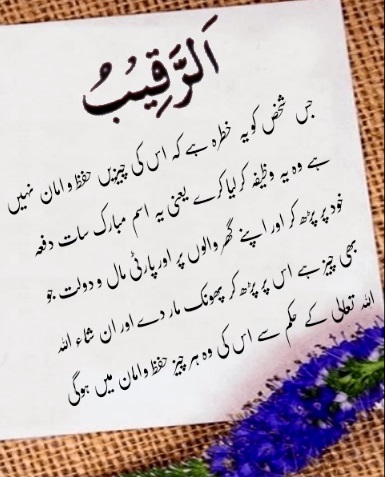 اَلرَّقِیْبُ
جس شخص کو یہ خطرہ ہے کہ اس کی چیزیں حفظ و امان نہیں
ہے وہ یہ وظیفہ کر لیا کرے یعنی یہ اسم مبارک سات دفعہ
خود پر پڑھ کر اور اپنے گھر والوں پر اور پارٹی مال و دولت جو
بھی چیز ہے اس پر پڑھ کر پھونک مار دے اور ان شاء اللہ
اللہ تعالی کے حکم سے اس کی وہ ہر چیز حفظ و امان میں ہوگی